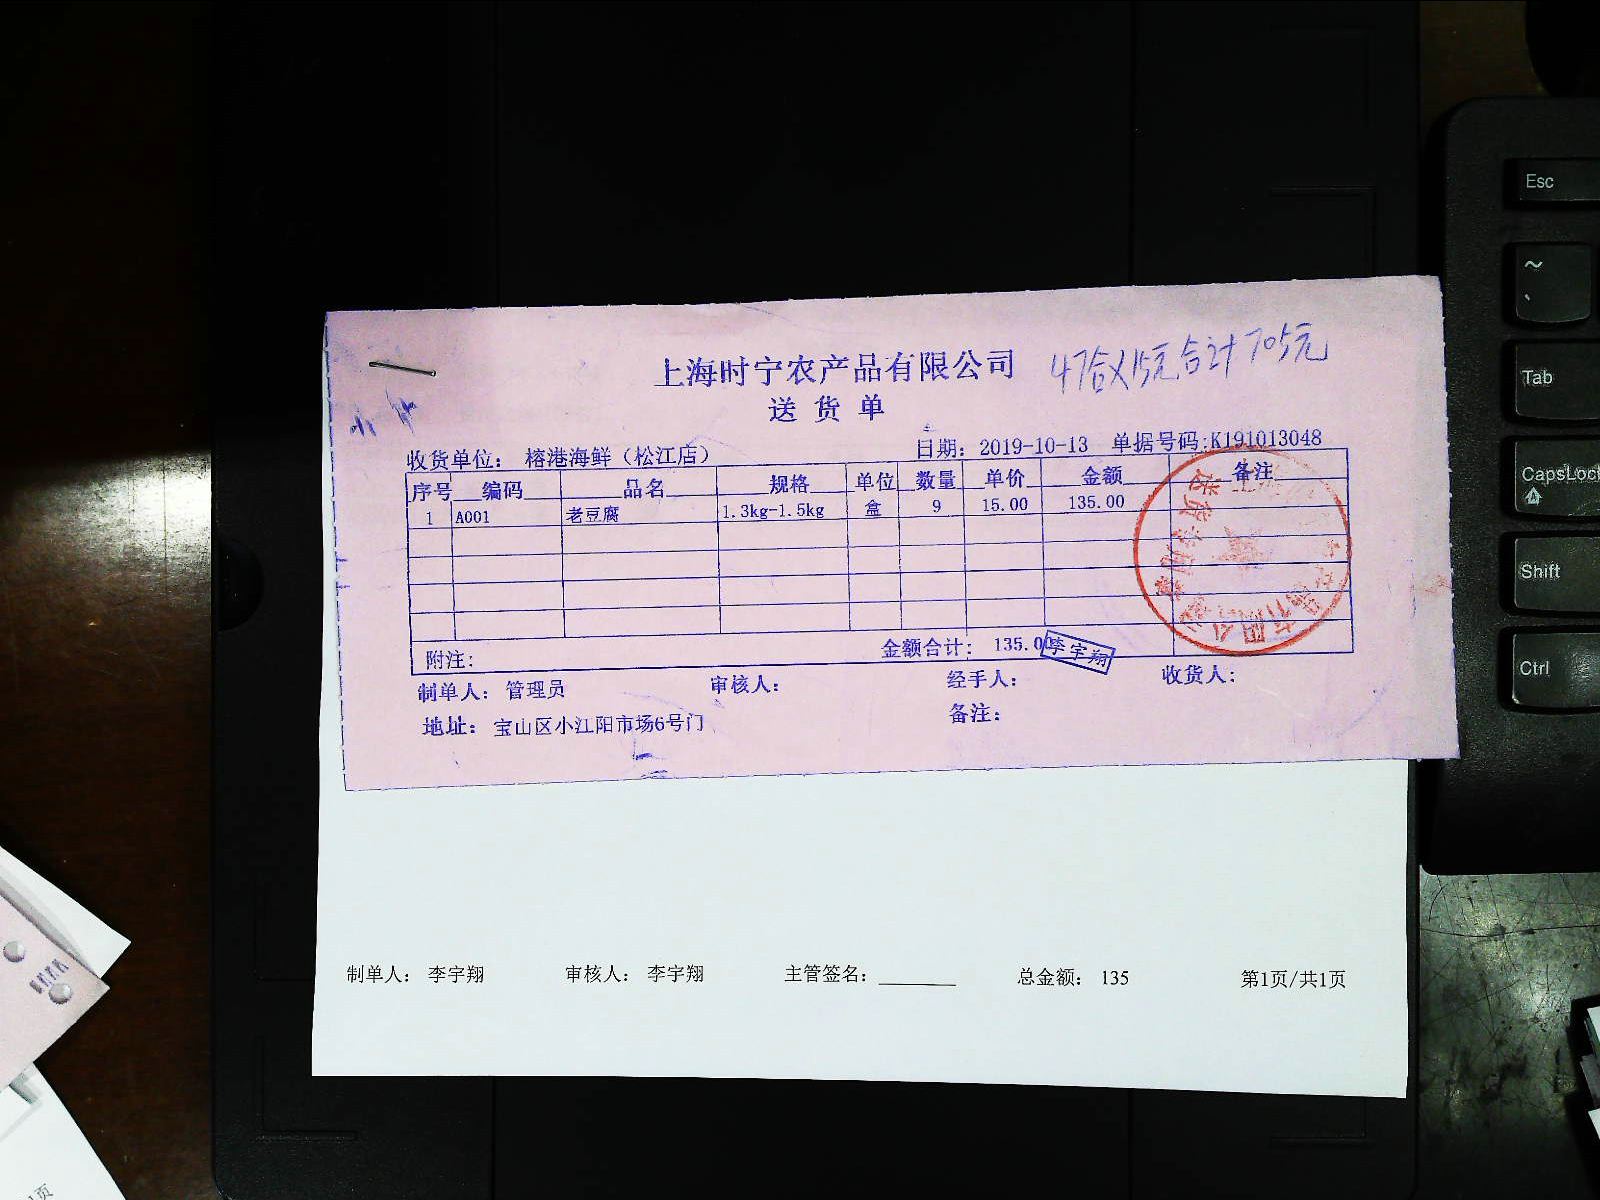 上海时宁农产品有限公司 47合×15元合计705元
送货单
收货单位: 榕港海鲜（松江店） 日期: 2019-10-13 单据号码:K191013048
序号 编码 品名 规格 单位 数量 单价 金额 备注
1 A001 老豆腐 1.3kg-1.5kg 盒 9 15.00 135.00
附注: 金额合计: 135.00 李宇翔
制单人: 管理员 审核人: 经手人: 收货人:
地址: 宝山区小江阳市场6号门 备注:
制单人: 李宇翔 审核人: 李宇翔 主管签名: 总金额: 135 第1页/共1页
Esc
~
Tab
CapsLoc
Shift
Ctrl